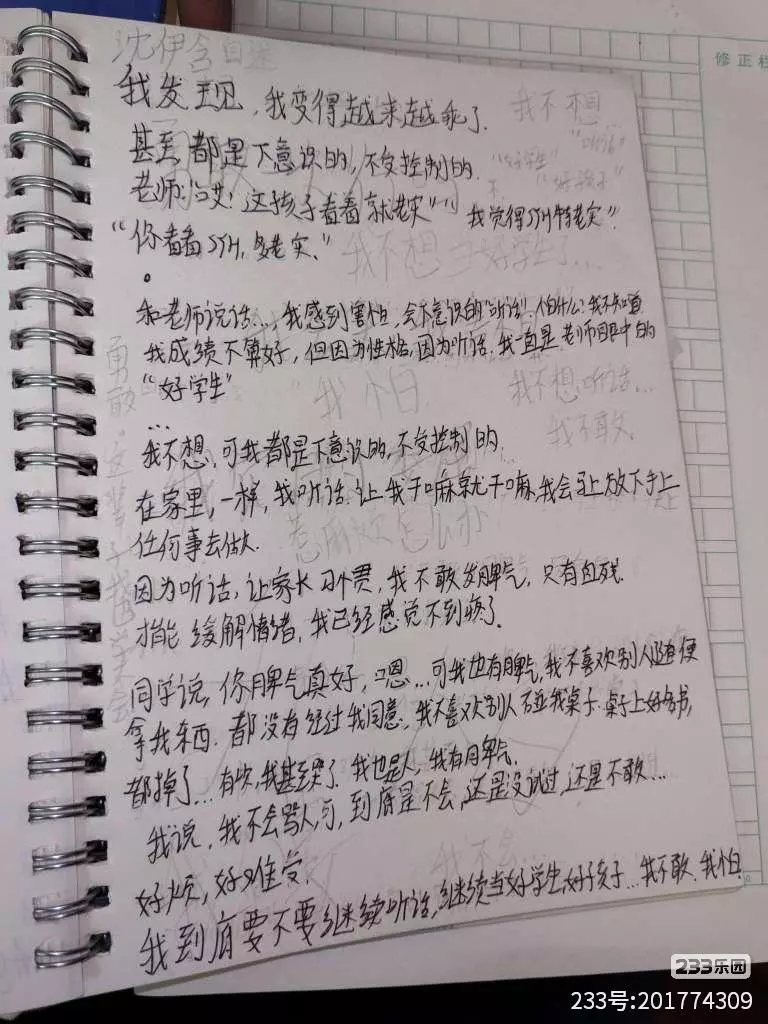 沈伊含自述
我发现,我变得越来越乖了.
甚至都是下意识的,不受控制的.
老师:“哎!这孩子看着就老实”“我觉得STH特老实”.
“你看看STH,多老实.”
和老师说话...,我感到害怕,会下意识的“听话”.怕什么?我不知道
我成绩不算好,但因为性格,因为听话.我一直是老师眼中的
“好学生”
...
我不想,可我都是下意识的,不受控制的.
在家里,一样,我听话.让我干嘛就干嘛,我会马上放下手上
任何事去做.
因为听话,让家长习惯,我不敢发脾气,只有自残.
才能缓解情绪,我已经感觉不到疼了.
同学说,你脾气真好,嗯...可我也有脾气,我不喜欢别人随便
拿我东西.都没有经过我同意,我不喜欢别人碰我桌子.桌子上好多书,
都掉了...有次,我甚至哭了.我也是人,我有脾气.
我说,我不会骂人,可,到底是不会,还是没试过,还是不敢...
好烦,好难受.
我到底要不要继续听话,继续当好学生,好孩子...我不敢.我怕
我不想...
“听话”
“好学生”
“好孩子”
我不想当好学生了...
我怕
我不想听话...
我不敢
勇敢
修正栏
233乐园
233号:201774309